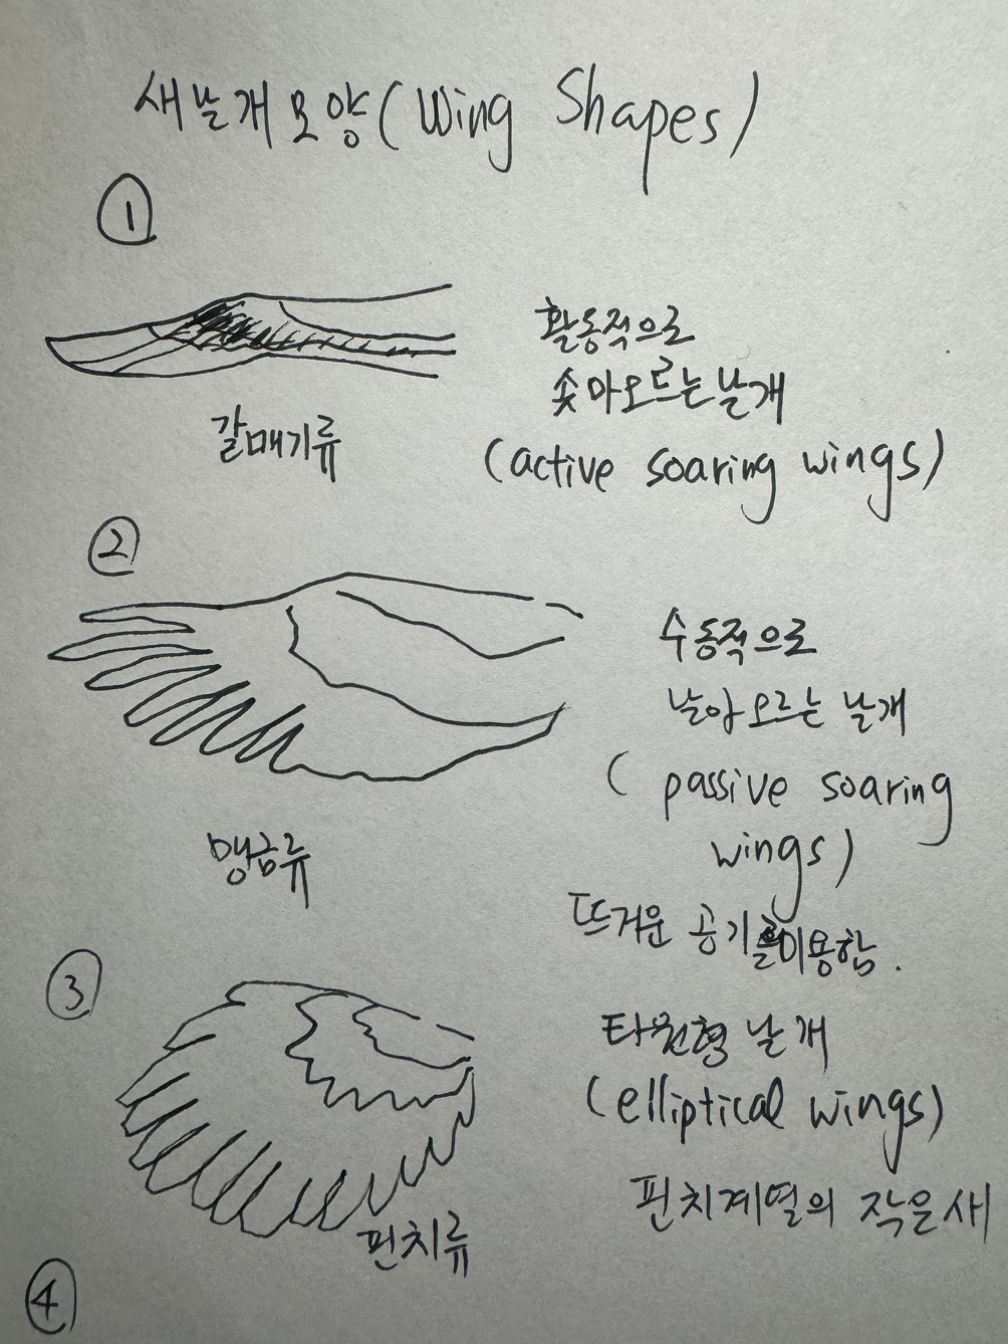 새 날개 모양 (Wing Shapes)
①
활동적으로
솟아오르는 날개
갈매기류
(active soaring wings)
②
수동적으로
날아오르는 날개
(passive soaring
wings)
맹금류
뜨거운 공기를 이용함.
③
타원형 날개
(elliptical wings)
핀치계열의 작은새
핀치류
④